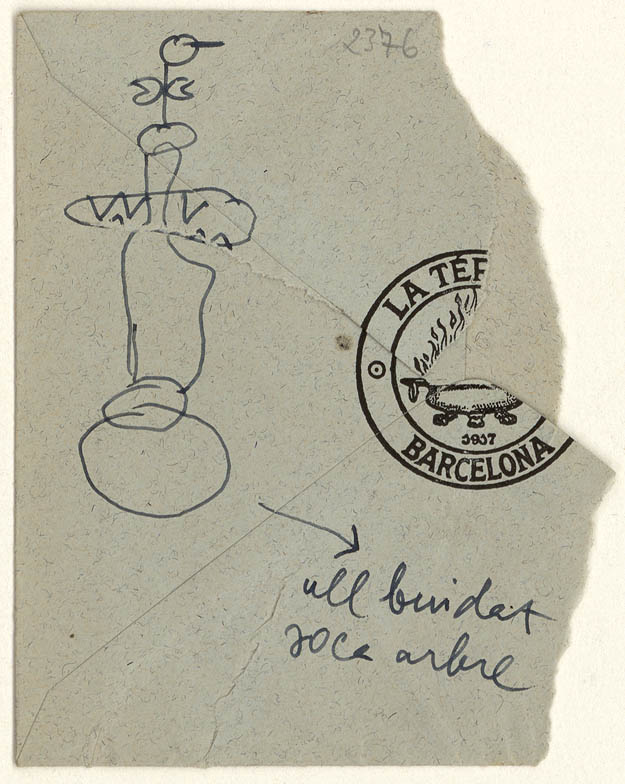 2376
LA TÉR
1937
BARCELONA
ull buidat
soca arbre